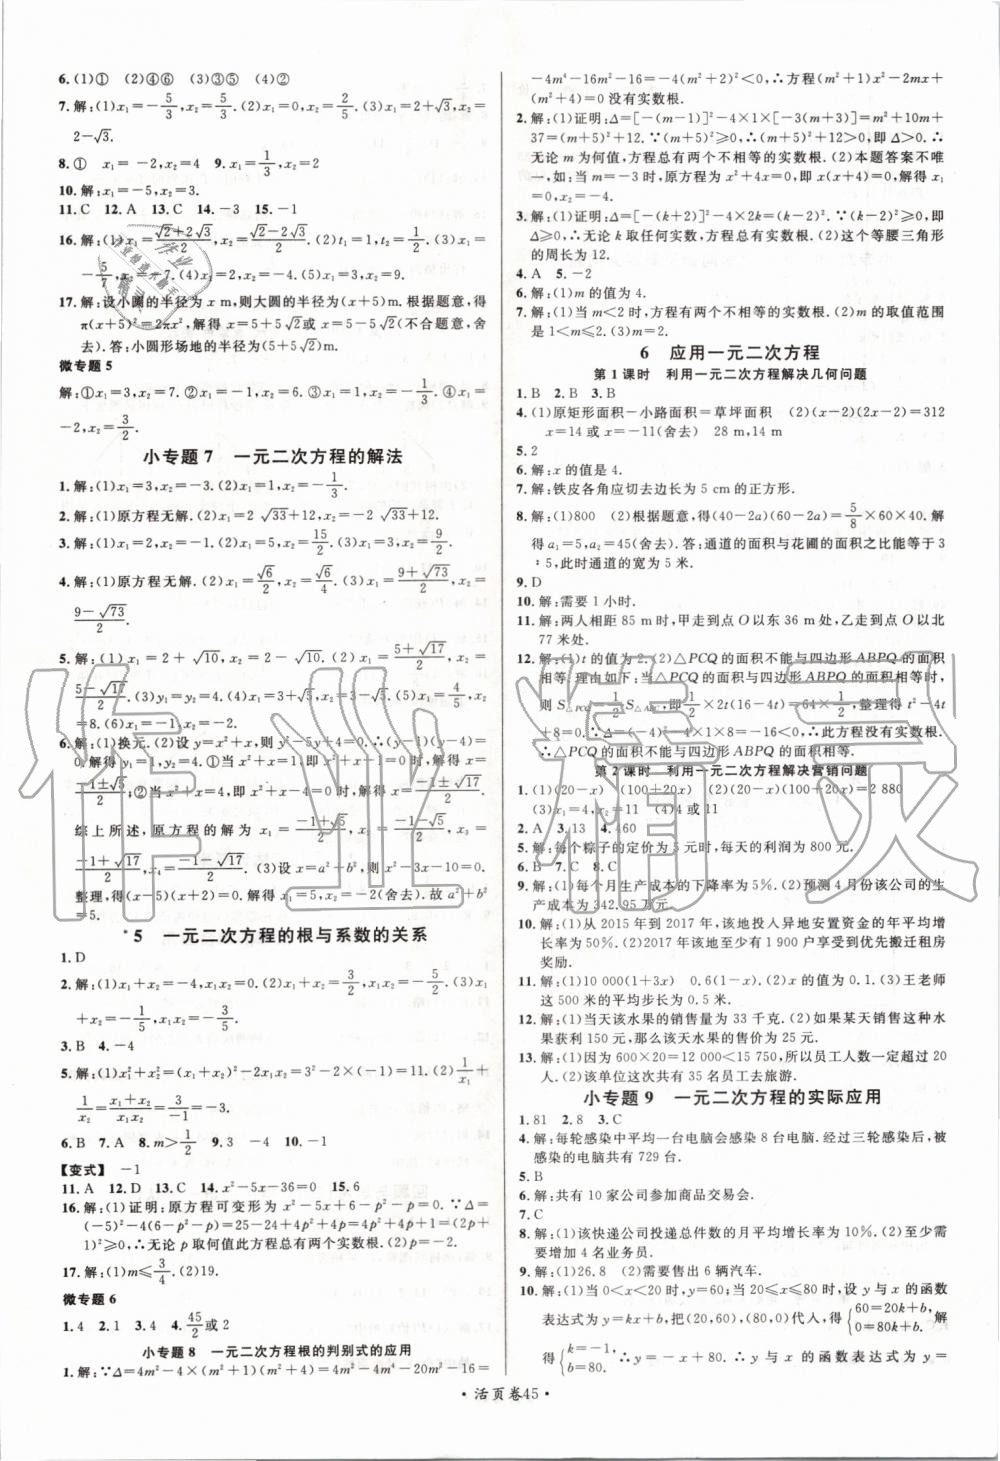 6. (1)① (2)④⑥ (3)③⑤ (4)②
7. 解:(1)x₁=-5/3,x₂=5/3. (2)x₁=0,x₂=2/5. (3)x₁=2+√3,x₂=
2-√3.
8. ① x₁=-2,x₂=4 9. x₁=1/3,x₂=2
10. 解:x₁=-5,x₂=3.
11. C 12. A 13. C 14. -3 15. -1
16. 解:(1)x₁=(√2+2√3)/2,x₂=(√2-2√3)/2. (2)t₁=1,t₂=1/2. (3)x₁=
-5/7,x₂=-7. (4)x₁=2,x₂=9.
17. 解:设小圆的半径为x m,则大圆的半径为(x+5)m. 根据题意,得
π(x+5)²=2πx²,解得x=5+5√2或x=5-5√2(不合题意,舍
去). 答:小圆形场地的半径为(5+5√2)m.
微专题5
解:①x₁=3,x₂=7. ②x₁=-1,x₂=6. ③x₁=1,x₂=-1/3. ④x₁=
-2,x₂=3/2.
小专题7 一元二次方程的解法
1. 解:(1)x₁=3,x₂=-3. (2)x₁=1,x₂=-1/3.
2. 解:(1)原方程无解. (2)x₁=2√33+12,x₂=-2√33+12.
3. 解:(1)x₁=2,x₂=-1. (2)x₁=5/2,x₂=15/2. (3)x₁=4,x₂=9/2.
4. 解:(1)原方程无解. (2)x₁=√6/2,x₂=√6/2. (3)x₁=(9+√73)/2,x₂=
(9-√73)/2.
5. 解:(1)x₁=2+√10,x₂=2-√10. (2)x₁=(5+√17)/2,x₂=
(5-√17)/2. (3)y₁=y₂=4. (4)x₁=3+√5,x₂=3-√5. (5)x₁=4/5,x₂
=8. (6)x₁=-1,x₂=2. (7)x₁=-2,x₂=4.
6. 解:(1)换元. (2)设y=x²+x,则y²-5y+4=0. ∴(y-1)(y-4)=
0. 解得y₁=1,y₂=4. ①当x²+x=1,即x²+x-1=0时,解得x=
(-1±√5)/2;②当x²+x=4,即x²+x-4=0时,解得x=(-1±√17)/2.
综上所述,原方程的解为x₁=(-1+√5)/2,x₂=(-1-√5)/2,x₃=
(-1+√17)/2,x₄=(-1-√17)/2. (3)设x=a²+b²,则x²-3x-10=0.
整理,得(x-5)(x+2)=0. 解得x₁=5,x₂=-2(舍去). 故a²+b²
=5.
*5 一元二次方程的根与系数的关系
1. D
2. 解:(1)x₁+x₂=-4,x₁x₂=0. (2)x₁+x₂=3/2,x₁x₂=-5/2. (3)x₁
+x₂=-1/5,x₁x₂=-3/5.
3. B 4. -4
5. 解:(1)x₁²+x₂²=(x₁+x₂)²-2x₁x₂=3²-2×(-1)=11. (2)1/x₁+
1/x₂=(x₁+x₂)/x₁x₂=3/-1=-3.
6. B 7. A 8. m>1/2 9. 3 -4 10. -3
【变式】 -1
11. A 12. D 13. C 14. x²-5x-36=0 15. 6
16. 解:(1)证明:原方程可变形为x²-5x+6-p²-p=0. ∵Δ=
(-5)²-4(6-p²-p)=25-24+4p²+4p=4p²+4p+1=(2p+
1)²≥0,∴无论p取何值此方程总有两个实数根. (2)p=-2.
17. 解:(1)m≤3/4. (2)19.
微专题6
1. 4 2. 1 3. 4 4. 45/2或2
小专题8 一元二次方程根的判别式的应用
1. 解:∵Δ=4m²-4(m²+1)(m²+4)=4m²-4m⁴-20m²-16=
-4m⁴-16m²-16=-4(m²+2)²<0,∴方程(m²+1)x²-2mx+
(m²+4)=0没有实数根.
2. 解:(1)证明:Δ=[-(m-1)]²-4×1×[-3(m+3)]=m²+10m+
37=(m+5)²+12. ∵(m+5)²≥0,∴(m+5)²+12>0,即Δ>0. ∴
无论m为何值,方程总有两个不相等的实数根. (2)本题答案不唯
一,如:当m=-3时,原方程为x²+4x=0,即x(x+4)=0,解得x₁
=0,x₂=-4.
3. 解:(1)证明:Δ=[-(k+2)]²-4×2k=(k-2)². ∵(k-2)²≥0,即
Δ≥0,∴无论k取任何实数,方程总有实数根. (2)这个等腰三角形
的周长为12.
4. A 5. -2
6. 解:(1)m的值为4.
7. 解:(1)当m<2时,方程有两个不相等的实数根. (2)m的取值范围
是1<m≤2. (3)m=2.
6 应用一元二次方程
第1课时 利用一元二次方程解决几何问题
1. B 2. B 3. B
4. (1)原矩形面积-小路面积=草坪面积 (2)(x-2)(2x-2)=312
x=14或x=-11(舍去) 28 m,14 m
5. 2
6. 解:x的值是4.
7. 解:铁皮各角应切去边长为5 cm的正方形.
8. 解:(1)800 (2)根据题意,得(40-2a)(60-2a)=5/8×60×40. 解
得a₁=5,a₂=45(舍去). 答:通道的面积与花圃的面积之比等于3
∶5,此时通道的宽为5米.
9. D
10. 解:需要1小时.
11. 解:两人相距85 m时,甲走到点O以东36 m处,乙走到点O以北
77米处.
12. 解:(1)t的值为2. (2)△PCQ的面积不能与四边形ABPQ的面积
相等. 理由如下:当△PCQ的面积与四边形ABPQ面积相等时,
则S△PCQ=1/2S△ABC,即1/2×2t(16-4t)=1/2×64,整理得t²-4t
+8=0. ∵Δ=(-4)²-4×1×8=-16<0,∴此方程没有实数根.
∴△PCQ的面积不能与四边形ABPQ的面积相等.
第2课时 利用一元二次方程解决营销问题
1. (1)(20-x) (100+20x) (2)(20-x)(100+20x)=2 880
(3)x₁=4,x₂=11 (4)4或11
2. A 3. 13 4. 460
5. 解:每个粽子的定价为5元时,每天的利润为800元.
6. B 7. C 8. C
9. 解:(1)每个月生产成本的下降率为5%. (2)预测4月份该公司的生
产成本为342.95万元.
10. 解:(1)从2015年到2017年,该地投人异地安置资金的年平均增
长率为50%. (2)2017年该地至少有1 900户享受到优先搬迁租房
奖励.
11. 解:(1)10 000(1+3x) 0.6(1-x) (2)x的值为0.1. (3)王老师
这500米的平均步长为0.5米.
12. 解:(1)当天该水果的销售量为33千克. (2)如果某天销售这种水
果获利150元,那么该天水果的售价为25元.
13. 解:(1)因为600×20=12 000<15 750,所以员工人数一定超过20
人. (2)该单位这次共有35名员工去旅游.
小专题9 一元二次方程的实际应用
1. 81 2. 8 3. C
4. 解:每轮感染中平均一台电脑会感染8台电脑. 经过三轮感染后,被
感染的电脑共有729台.
5. B
6. 解:共有10家公司参加商品交易会.
7. C
8. 解:(1)该快递公司投递总件数的月平均增长率为10%. (2)至少需
要增加4名业务员.
9. 解:(1)26.8 (2)需要售出6辆汽车.
10. 解:(1)当0<x<20时,y=60;当20≤x≤80时,设y与x的函数
表达式为y=kx+b,把(20,60),(80,0)代入,可得{60=20k+b, 0=80k+b,
解得{k=-1, b=80. ∴y=-x+80. ∴y与x的函数表达式为y=
·活页卷45·
作业精灵